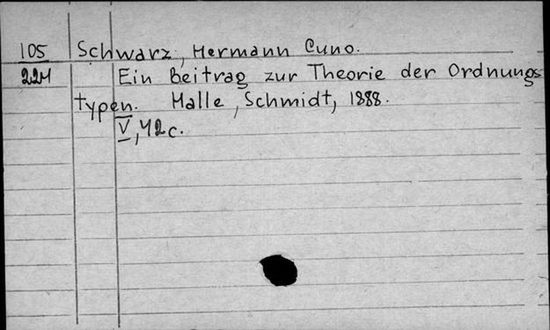 105 Schwarz, Hermann Cuno.
221 Ein Beitrag zur Theorie der Ordnungs
typen. Halle, Schmidt, 1888.
V, 42 c.